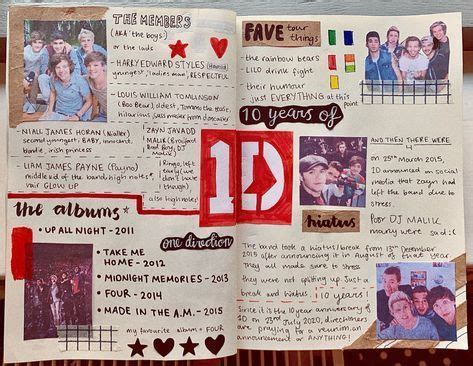 THE MEMBERS
(AKA 'the boys')
or the lads
- HARRY EDWARD STYLES (Hazza)
youngest, 'ladies man', RESPECTFUL
- LOUIS WILLIAM TOMLINSON
(Boo Bear), oldest, Tommo the tease,
hilarious, sass master from doncaster
- NIALL JAMES HORAN (Nialler)
second youngest, BABY, innocent,
blondie, irish princess
- LIAM JAMES PAYNE (Payno)
middle kid of the band, high notes,
hair GLOW UP
- ZAYN JAVADD
MALIK
bad boy, DJ
Malik)
left
early (we
don't have
though)
also high notes!
the albums
• UP ALL NIGHT - 2011
• TAKE ME
HOME - 2012
• MIDNIGHT MEMORIES - 2013
• FOUR - 2014
• MADE IN THE A.M. - 2015
one direction
my favourite album = FOUR
FAVE tour
things
- the rainbow bears
- LILO drink fight
- their humour
- just EVERYTHING at this
point
10 years of
1D
AND THEN THERE WERE
4
on 25th March 2015,
1D announced on social
media that zayn had
left the band due to
stress.
POOR DJ MALIK
many were sad :(
hiatus
The band took a hiatus/break from 13th December
2015 after announcing it in august of that year
They all made sure to stress
they were not splitting up. Just a
break and hiatus.
10 years!
Since it is the 10 year anniversary of
1D on 23rd July 2020, directioners
are praying for a reunion
announcement or ANYTHING!